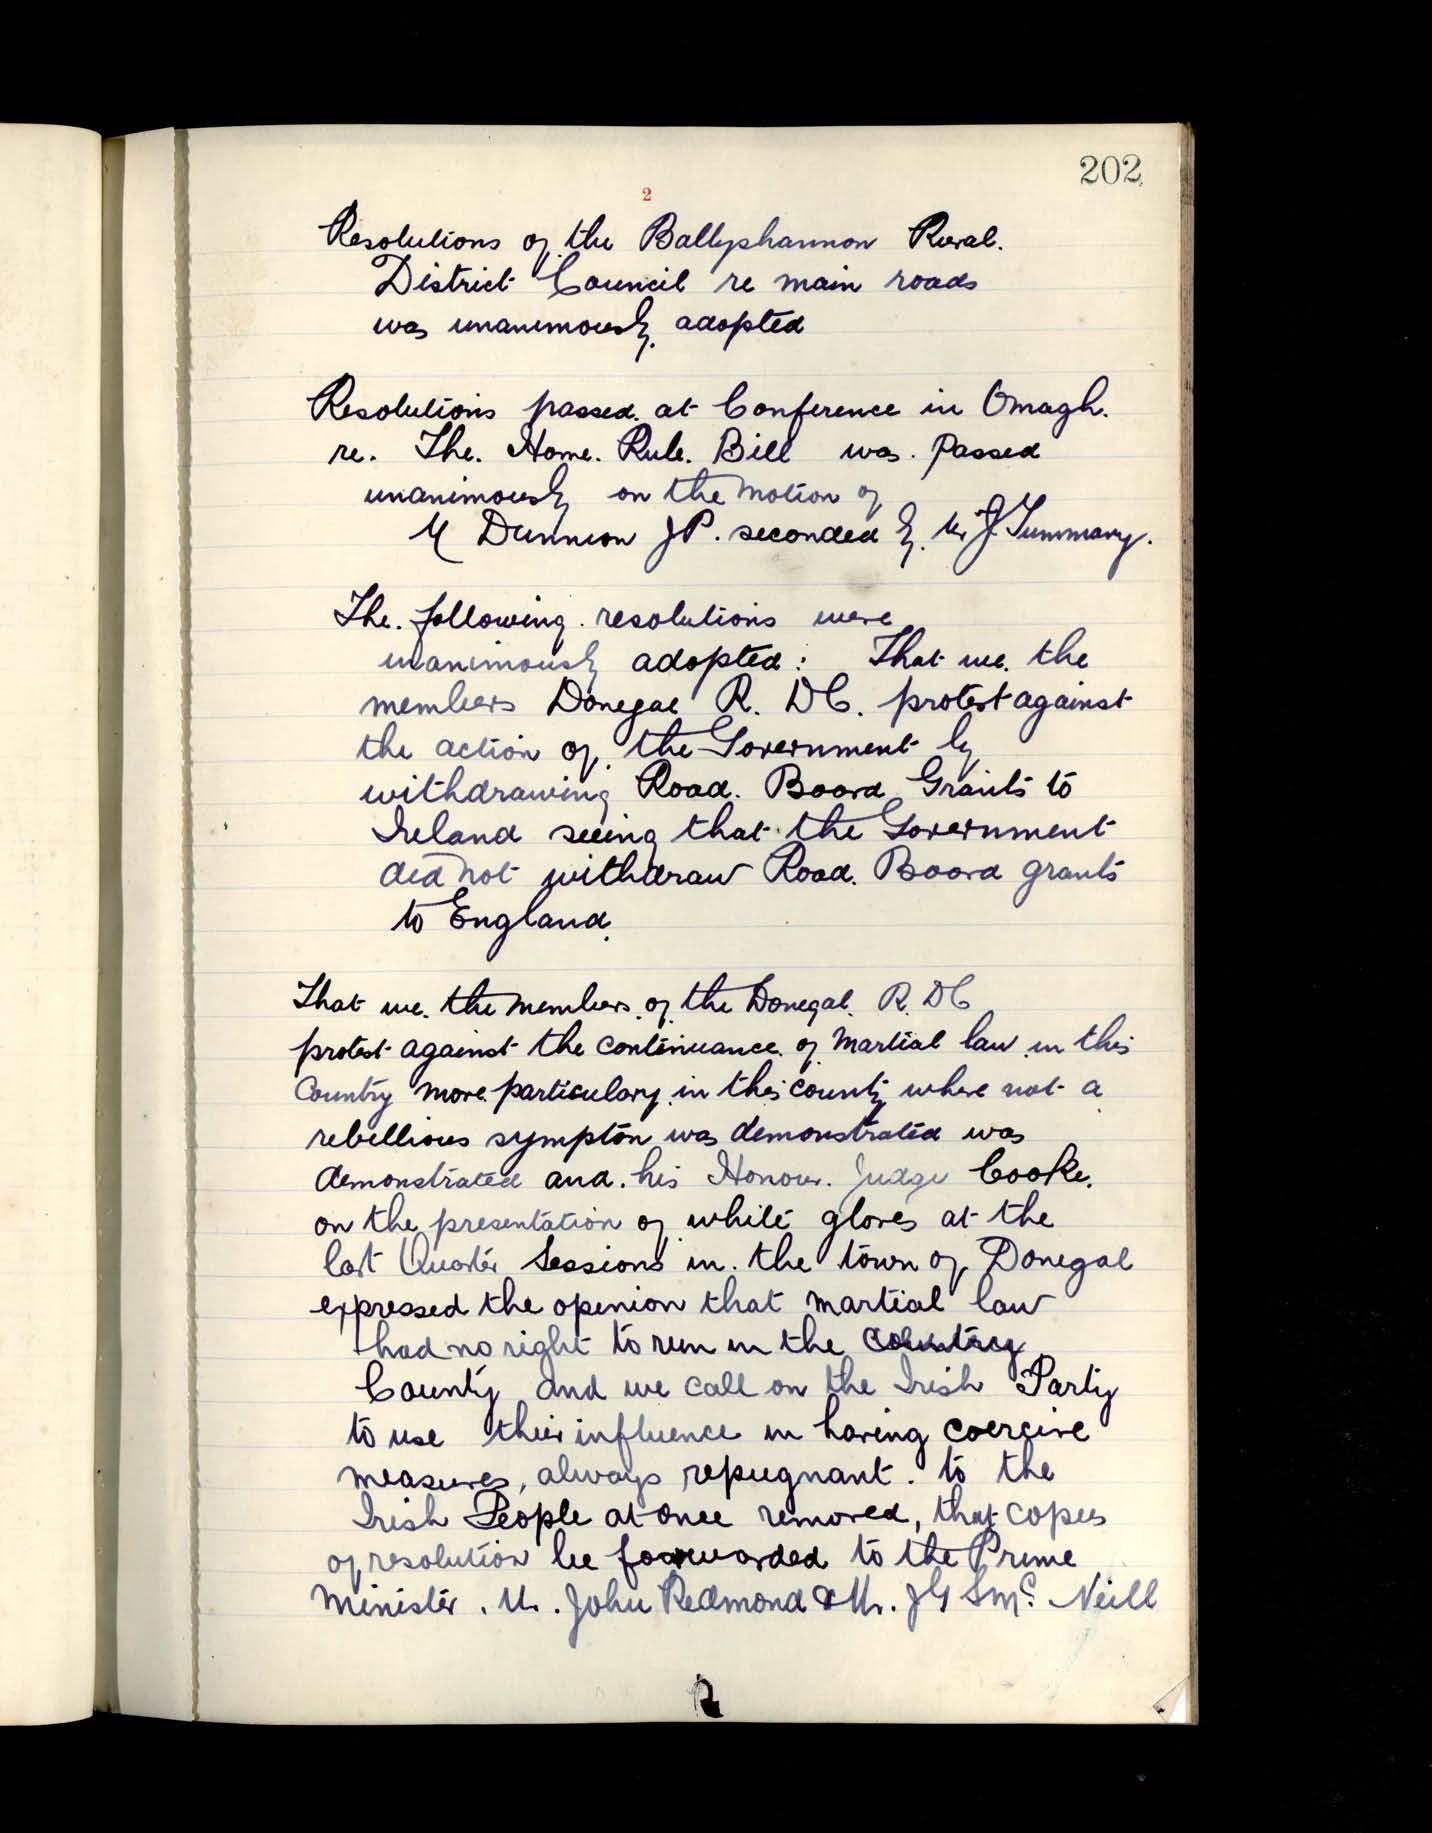 202
2
Resolutions of the Ballyshannon Rural.
District Council re main roads
was unanimously adopted
Resolutions passed at Conference in Omagh.
re. The. Home. Rule. Bill was. passed
unanimously on the motion of
Dunnion JP. seconded by Mr J Timmany.
The. following. resolutions were
unanimously adopted: That we. the
members Donegal R. DC. protest against
the action of the Government by
withdrawing Road. Board Grants to
Ireland seeing that the Government
did not withdraw Road. Board grants
to England.
That we. the members of the Donegal. R. DC
protest against the continuance of martial law in this
Country more particulary in this county where not a
rebellious sympton was demonstrated was
demonstrated and. his Honour. Judge Cooke.
on the presentation of white gloves at the
last Quarter Sessions in. the town of Donegal
expressed the opinion that martial law
had no right to run in the country
County and we call on the Irish Party
to use their influence in having coercive
measures, always repugnant. to the
Irish People at once removed, that copies
of resolution be forwarded to the Prime
Minister. Mr. John Redmond & Mr. JG S McNeill